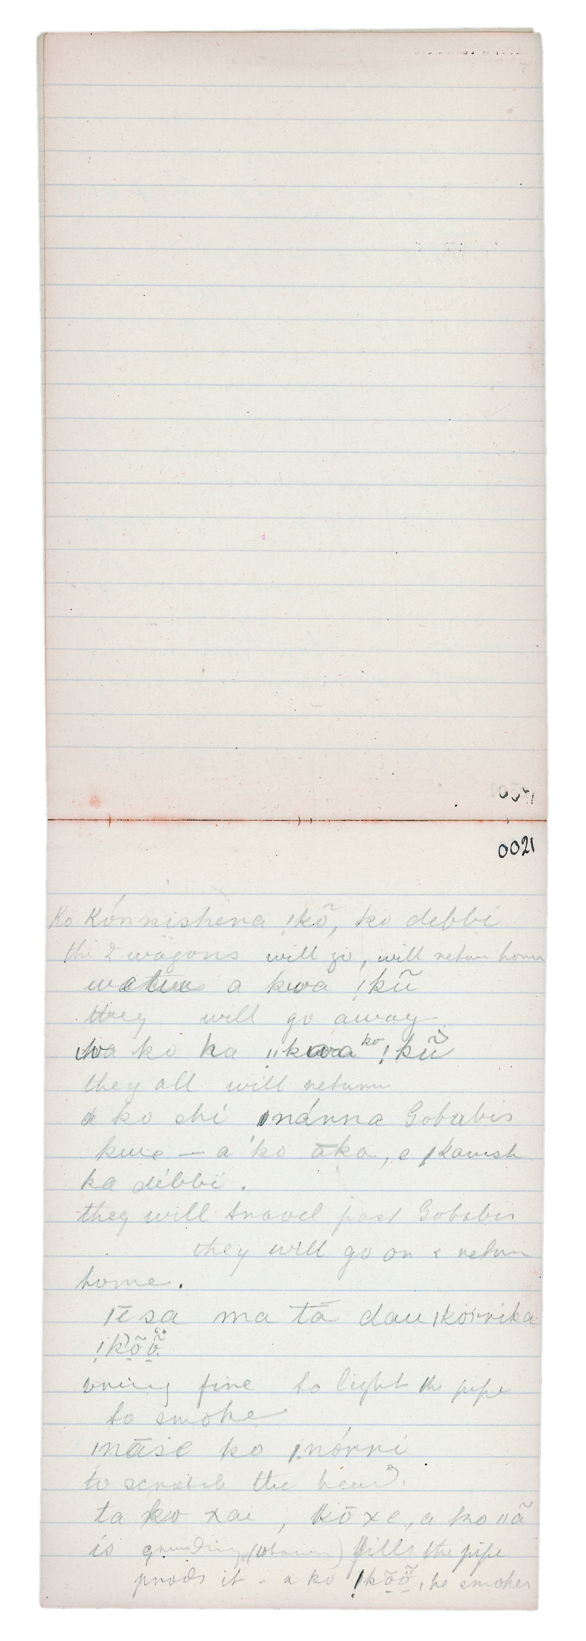 0021
Ko Kónnishena !kõ, ko debbi
the 2 wagons will go, will return home
a kwa !kũ
they will go away
ko ha ǁkwa ko !kũ
they all will return
a ko chi ǀnánna Gobabis
kwe – a ko āka, e
ka débbi.
they will travel past Gobabis
they will go on & return
home.
ǀē sa ma tā dau ǀkórrika
!kõõ
bring fire to light the pipe
to smoke
ǀnāse ko ǀnórri
to scratch the head.
ta ko xai, kōxe, a ko ǁã
is grinding fills the pipe
it – a ko !kõõ, he smokes